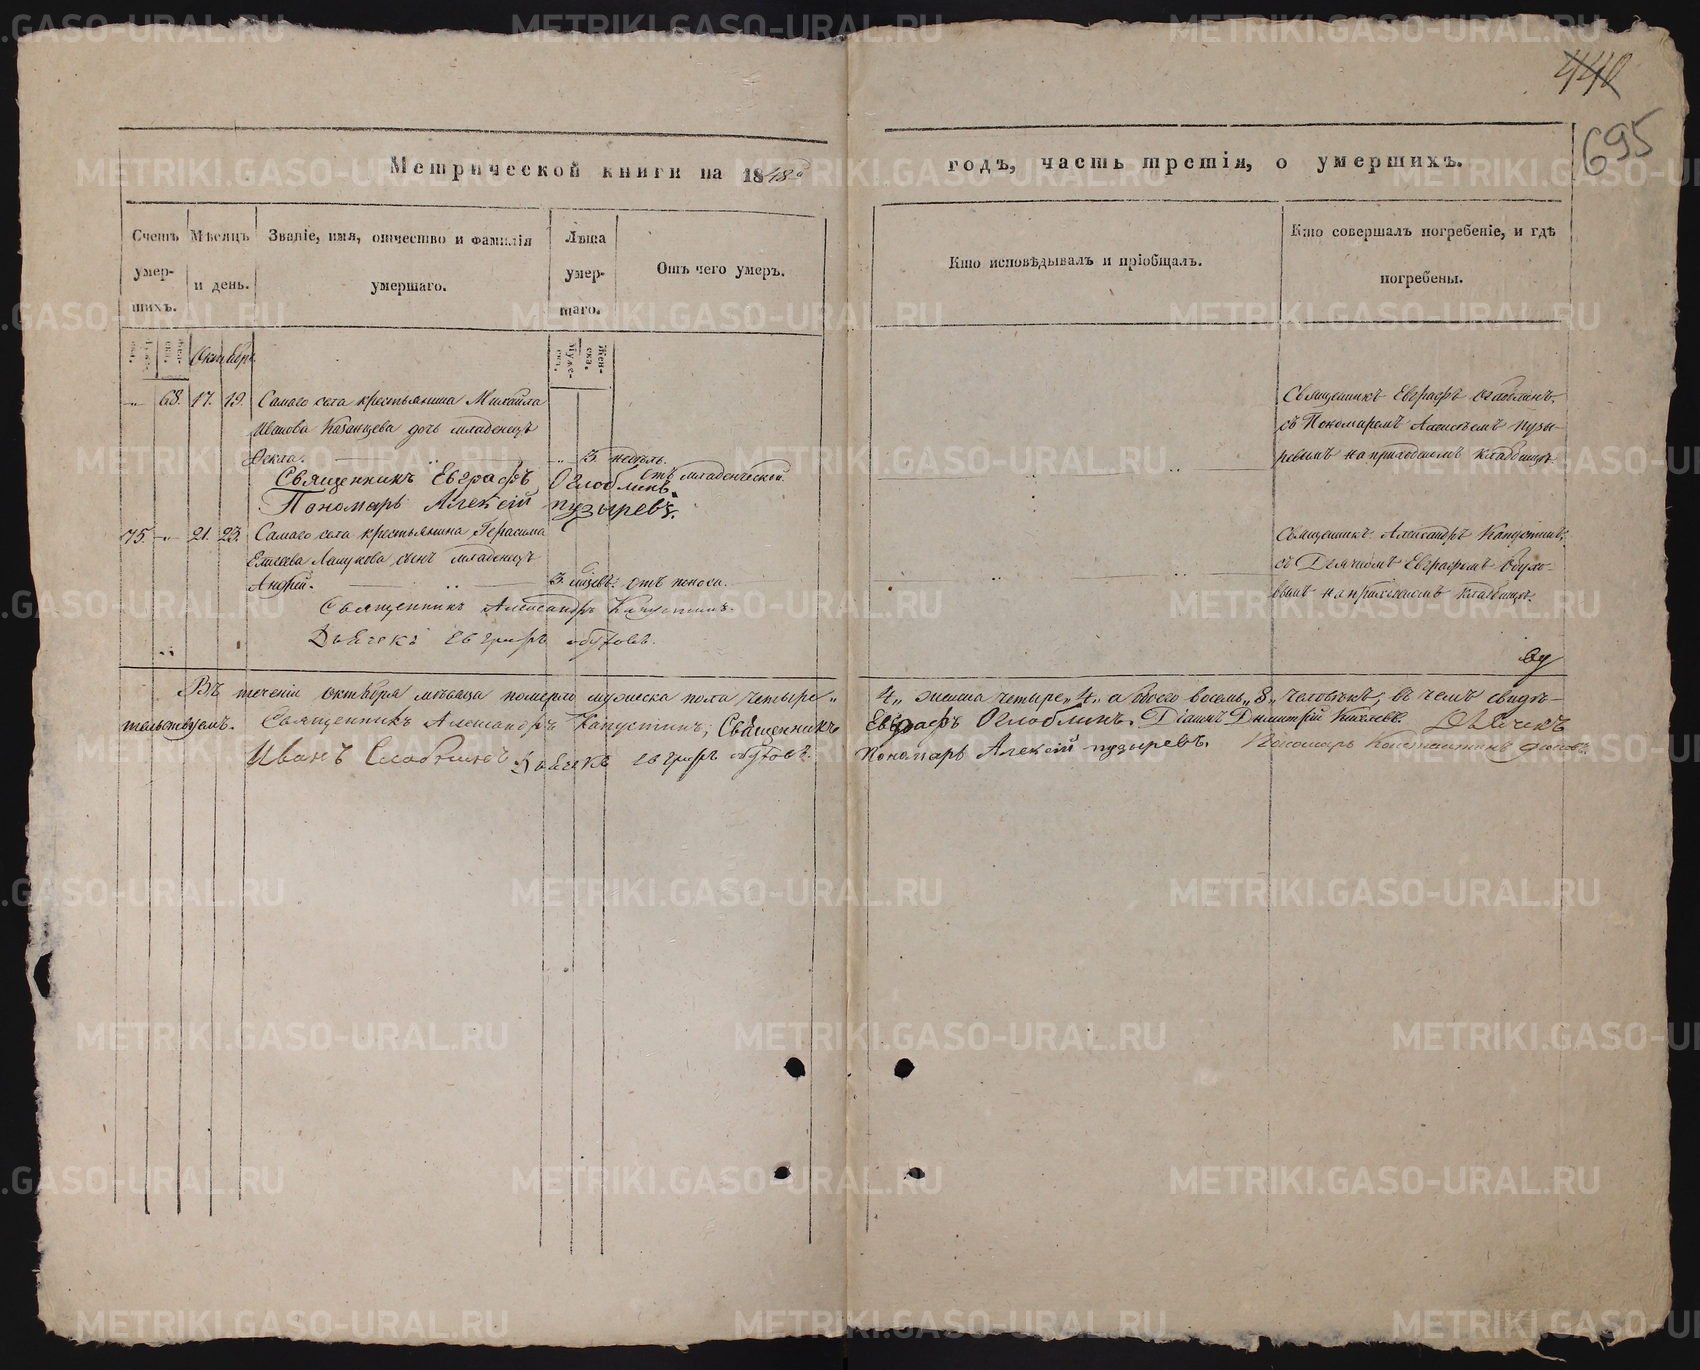 440
695
Метрической книги на 1848й годъ, часть третія, о умершихъ.
Счетъ умерших.
Мѣсяцъ и день.
Званіе, имя, отчество и фамилія умершаго.
Лѣта умершаго.
Отъ чего умеръ.
Кто исповѣдывалъ и пріобщалъ.
Кто совершалъ погребеніе, и гдѣ погребены.
Октября
68. 17. 19. Самаго села крестьянина Михаила
Иванова Казанцева дочь младенецъ
Ѳекла. 3 недѣль. отъ младенческой.
Священникъ Евграфъ Оглоблинъ
Священникъ Евграфъ Оглоблинъ.
съ Пономаремъ Алексѣемъ Пузы-
ревымъ на приходскомъ кладбищѣ.
Пономарь Алексій Пузыревъ.
75. 21. 23. Самаго села крестьянина Герасима
Елисеева сынъ младенецъ
Андрей. 3. мѣсяц: отъ поноса.
Священникъ Александръ Капустинъ.
съ Дьячкомъ Евграфомъ Обухо-
вымъ на приходскомъ кладбищѣ.
Священникъ Александръ Капустинъ.
Дьячекъ Евграфъ Обуховъ.
Въ теченіи октября мѣсяца померло мужеска пола четыре „4„ женска четыре „4„ а обоего восемь „8„ человѣкъ; въ чемъ свидѣ-
тельствуемъ. Священникъ Александръ Капустинъ; Священникъ Евграфъ Оглоблинъ. Діаконъ Димитрій Дьячекъ
Иванъ Дьячекъ Евграфъ Обуховъ. Пономарь Алексій Пузыревъ. Пономарь Константинъ